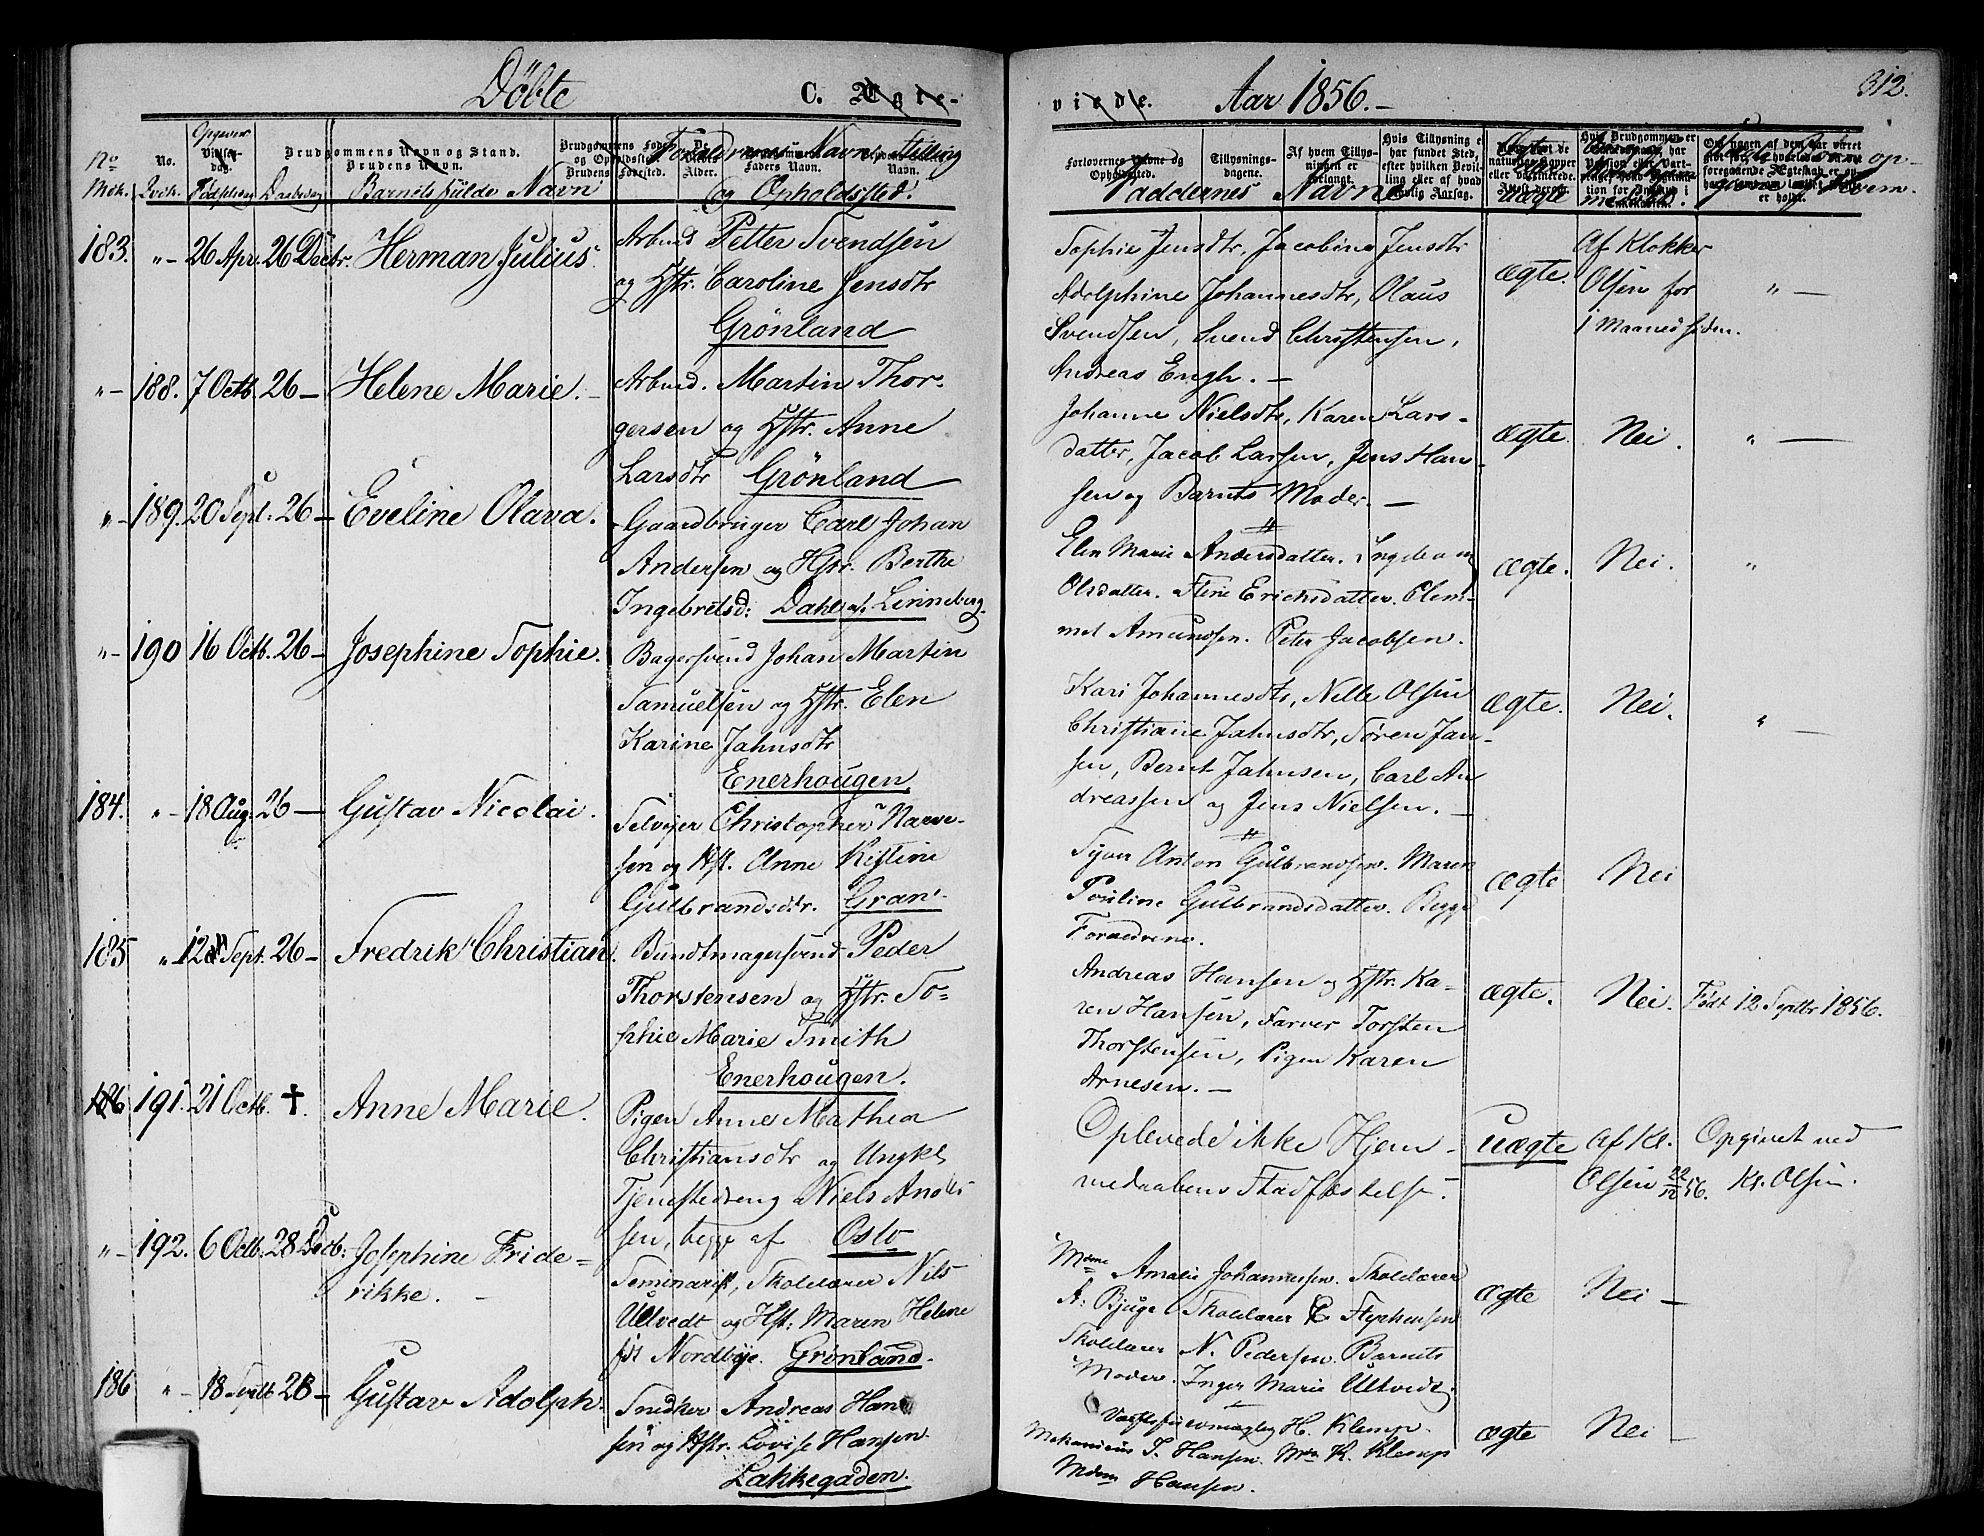 Döbte C. Ægte-
viede. Aar 1856.- 312.
No. Mök. Qvik. Fødselsdag Daabsdag
Brudgommens Navn og Stand.
Brudens Navn.
Barnets fulde Navn
Forældrenes Navn, Stilling
og Opholdssted.
Forlovernes Navne og Opholdssted.
Tillysnings-dagene.
Faddernes Navne
Ægte
eller
uægte
183. "- 26 Apr. 26 Decbr. Herman Julius.
Arbmd Petter Svendsen
og Hstr. Caroline Jensdtr
Grønland
Sophie Jensdtr, Jacobine Jensdtr
Adolphine Johannesdtr, Olaus
Svendsen, Svend Christensen,
Andreas Engh. -
ægte.
Af Klokker
Olsen for
1 Maaned siden.
" -
"- 188. 7 Octb. 26 - Helene Marie. -
Arbmd. Martin Thor-
gersen og Hstr. Anne
Larsdtr Grönland
Johanne Nielsdtr, Karen Lars-
datter, Jacob Larsen, Jens Han-
sen og Barnets Moder. -
ægte. Nei. " -
"- 189. 20 Sept. 26 - Eveline Olava.
Gaardbruger Carl Johan
Andersen og Hstr. Berthe
Ingebretsd: Dahl af Linneberg.
Elen Marie Andersdatter.
Olsdatter. Stine Erichsdatter. Clem-
met Amundsen. Peter Jacobsen.
ægte. Nei. "
"- 190 16 Octb. 26 - Josephine Sophie.
Bagersvend Johan Martin
Samuelsen og Hstr. Elen
Karine Jahnsdtr
Enerhougen,
Kari Johannesdtr, Nelle Olsen
Christiane Jahnsdtr, Søren Jan-
sen, Bernt Jahnsen, Carl An-
dreassen og Jens Nielsen. -
ægte. Nei. " -
184. "- 18 Aug. 26 - Gustav Nicolai.
Selveier Christopher Narve-
sen og Hst. Anne Kistine
Gulbrandsdtr. Gran.
Anton Gulbrandsen. Maren
Pouline Gulbrandsdatter. Begge
Forældrene.
ægte Nei
185 "- 12 Sept. 26 - Fredrik Christian.
Bundtmagersvend Peder
Thorstensen og Hstr. So-
phie Marie Smith
Enerhougen.
Andreas Hansen og Hstr. Ka-
ren Hansen, Farver Torsten
Thorstensen, Pigen Karen
Arnesen. -
ægte. Nei. Født 12 Septbr 1856.
186 191. 21 Octb. †. Anne Marie.
Pigen Anne Mathea
Christiansdtr og Ungkl
Tjenestedreng Niels Anders
sen, begge af Oslo
Oplevede ikke Hjem-
medaabens Stadfæstelse.
uægte
Af Kl.
Olsen 22/12 56.
Opgivet ved
Kl. Olsen.
"- 192. 6 Octb. 28 Decb: Josephine Fride=
rikke. -
Seminarist, Skolelærer Nils
Ultvedt og Hst: Maren Helene
født Nordbye. Grønland.
Mdme Amalie Johannessen. Skolelærer
A: Bjuge Skolelærer C Stephensen
Skolelærer N. Pedersen. Barnets
Moder. Inger Marie Ultvedt,
ægte Nei -
186 "- 18 Septb 28 - Gustav Adolph.
Snedker Andreas Han
sen og Hstr. Lovise Hansen
Lakkegaden.
H. Klemp.
Mekanicus T. Hansen. Mdm K. Klemp
Mdm Hansen.
ægte Nei -